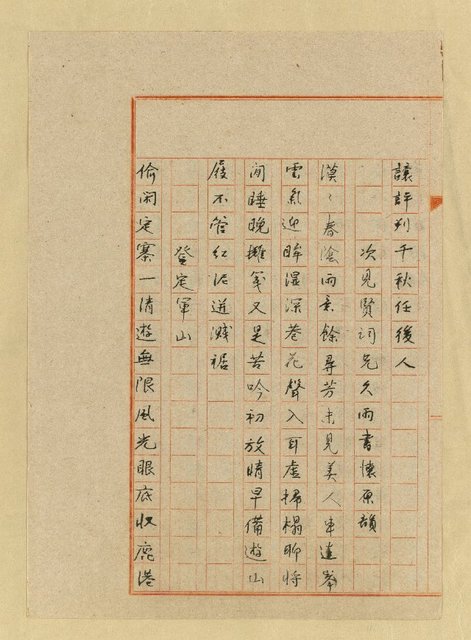 讓評判千秋任後人
次見賢詞兄久雨書懷原韻
漠々春陰雨意餘尋芳未見美人車連峯
雲氣迎眸濕深巷花聲入耳虛掃榻聊將
間睡晚攤箋又是苦吟初放晴早備遊山
屐不管紅泥道濺裾
登定軍山
偷閑定寨一清遊無限風光眼底收鹿港